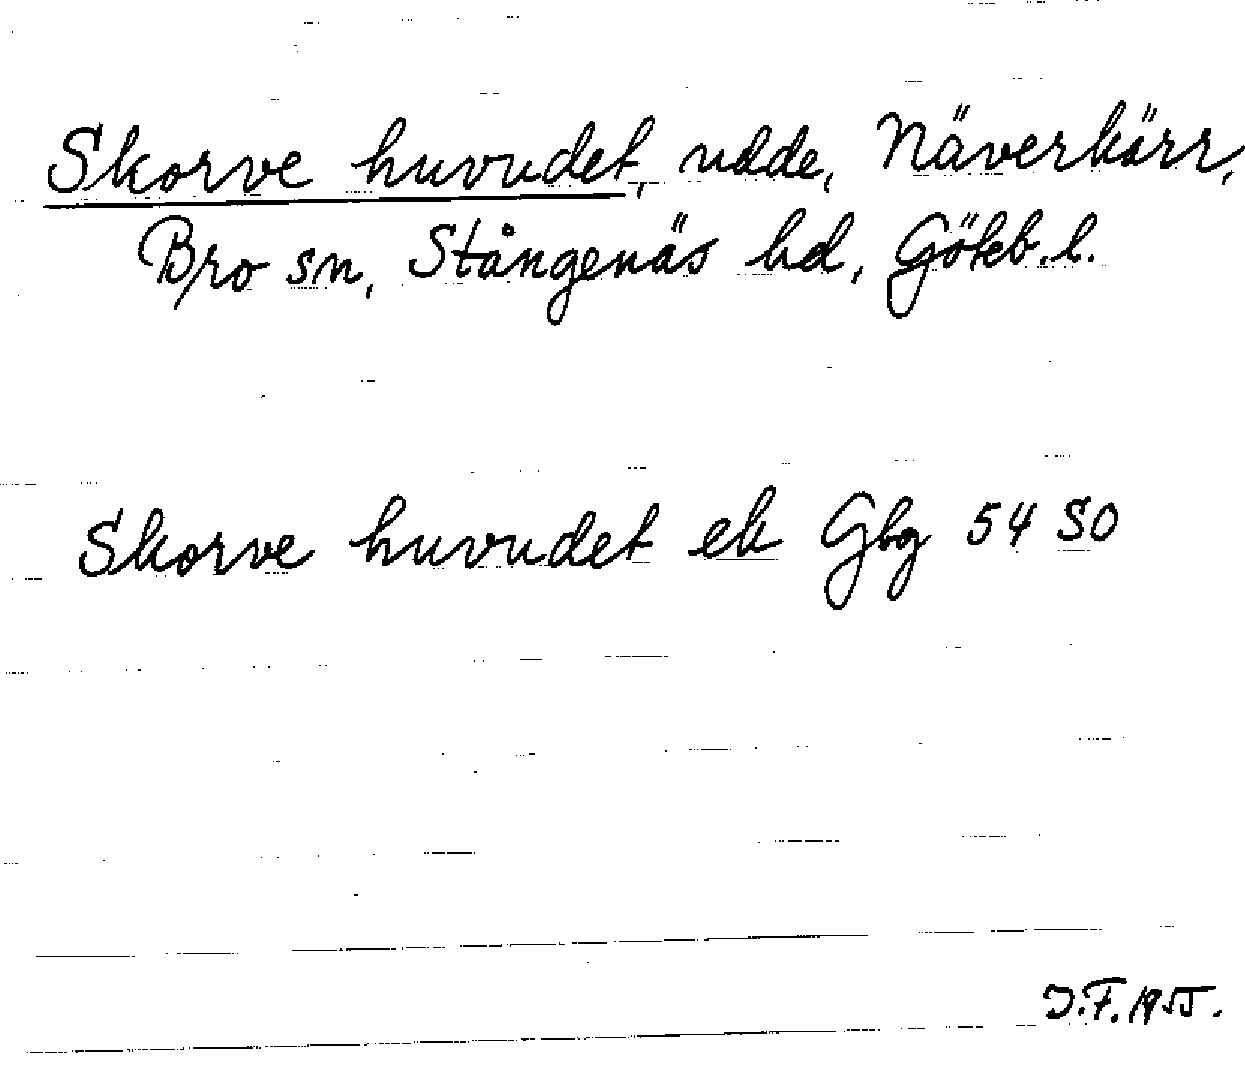 Skorve huvudet, udde, Näverkärr,
Bro sn, Stångenäs hd, Göteb. l.
Skorve huvudet ek Gbg 54 SO
J.F. 1955.